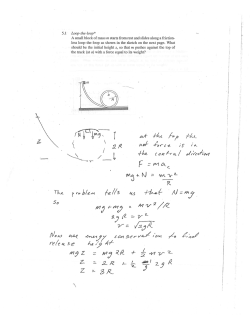 5.1 Loop-the-loop*
A small block of mass m starts from rest and slides along a friction-
less loop-the-loop as shown in the sketch on the next page. What
should be the initial height z, so that m pushes against the top of
the track (at a) with a force equal to its weight?
z
R
N mg
2R
z
at the top the
net force is in
the central direction
F = ma
mg + N = mv²
R
The problem tells us that N = mg
so
mg + mg = mv²/R
2gR = v²
v = √2gR
Now use energy conservation to find
release height
mgz = mg2R + ½ mv²
z = 2R + ½ 2gR
z = 3R